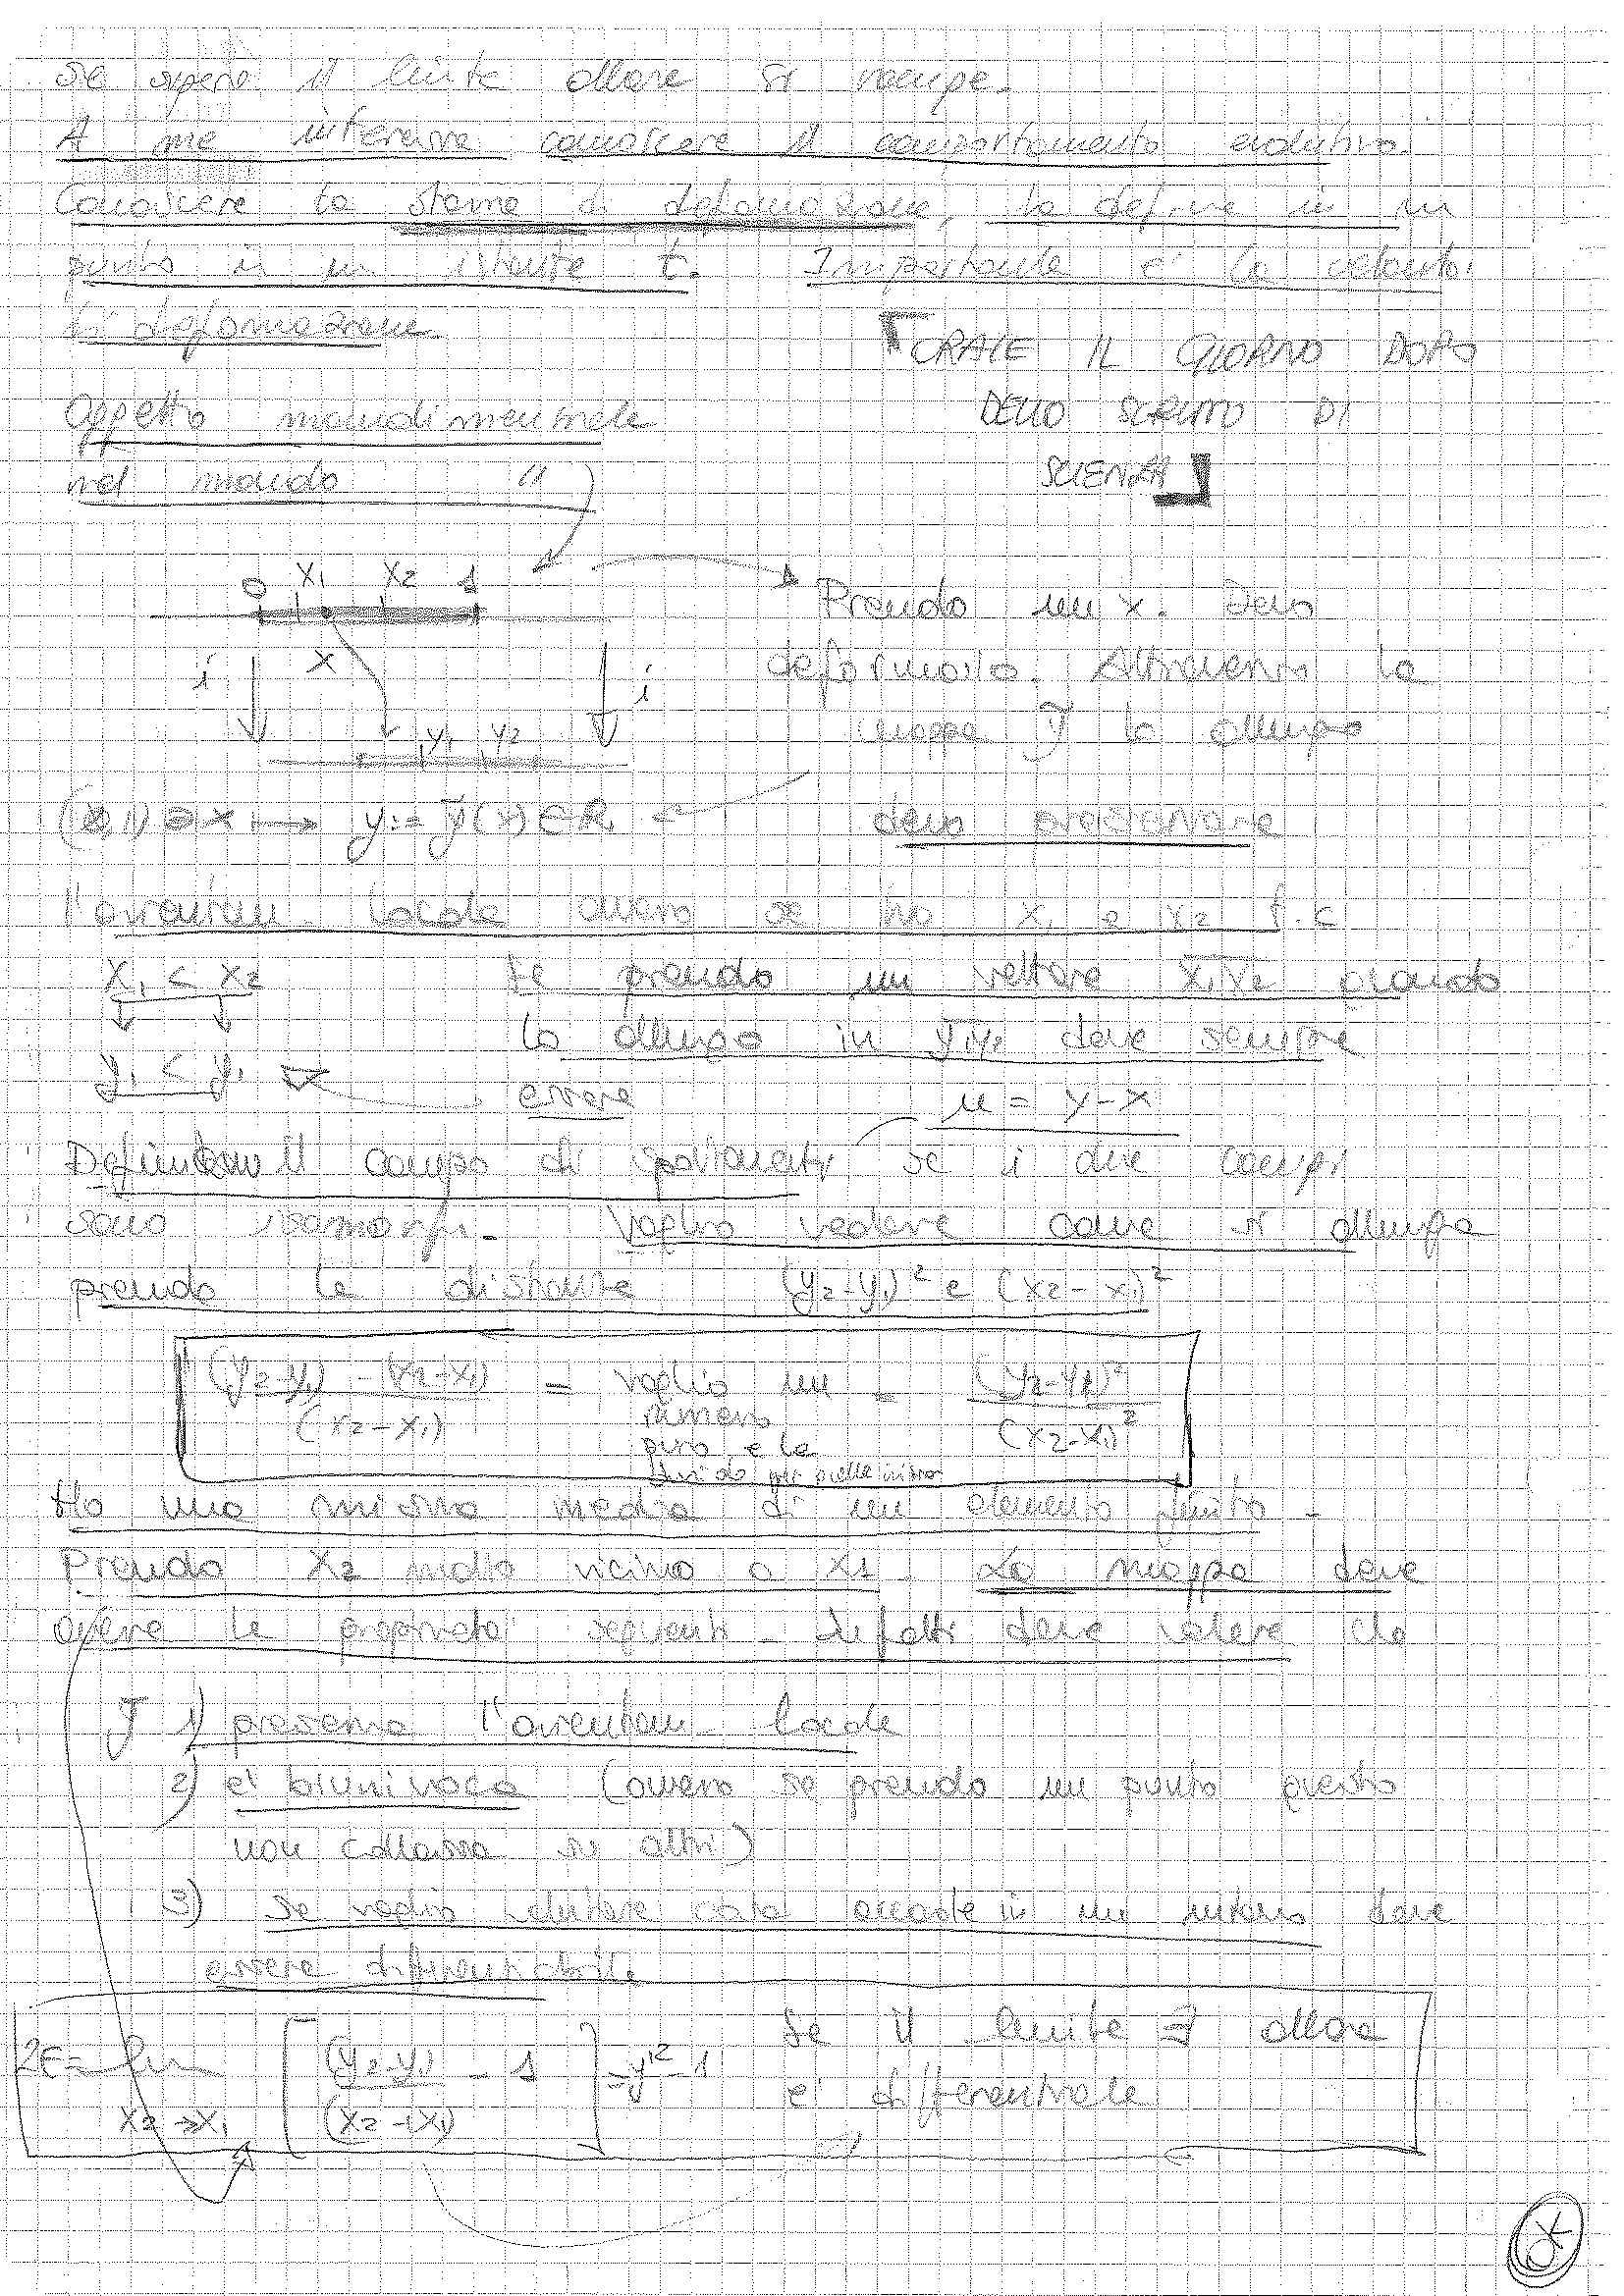 Se supera il limite allora si rompe.
A me interessa conoscere il comportamento evolutivo.
Conoscere lo stame di deformazione, lo definire in un
punto in un istante t. Importante e' la velocita'
di deformazione.
ORALE IL GIORNO DOPO
DELLO SCRITTO DI
SCIENZA
Oggetto monodimensionale
nel mondo "
0 x1 x2 1
x
i i
y1 y2
Prendo un x. Devo
deformarlo. Attraverso la
mappa ỹ lo allungo
(0,1) ∋ x ⟼ y := ỹ(x) ∈ R,
devo preservare
l'orientam. locale ovvero se ho x1 e x2 t.c
x1 < x2
Se prendo un vettore x1x2 quando
lo allungo in y1y2 deve sempre
y1 < y1
essere
u = y-x
Definiamo il campo di spostamenti, se i due campi
sono isomorfi. Voglio vedere come si allunga
prendo le distanze (y2-y1)² e (x2-x1)²
(y2-y1) - (x2-x1) / (x2-x1) = voglio un = (y2-y1)² / (x2-x1)²
numero
puro e la
divido per quella iniz
Ho una misura media di un elemento finito -
Prendo x2 molto vicino a x1. La mappa deve
avere le proprieta' seguenti - difatti deve valere che
ỹ 1) preserva l'orientam. locale
2) e' biunivoca (ovvero se prendo un punto questo
non collassa su altri)
3) se voglio valutare cosa accade in un intorno deve
essere differenziabile
2ε = lim x2→x1 [ (y2-y1) / (x2-x1) - 1 ] = y'² - 1
Se il limite ∃ allora
e' differenziale
OK